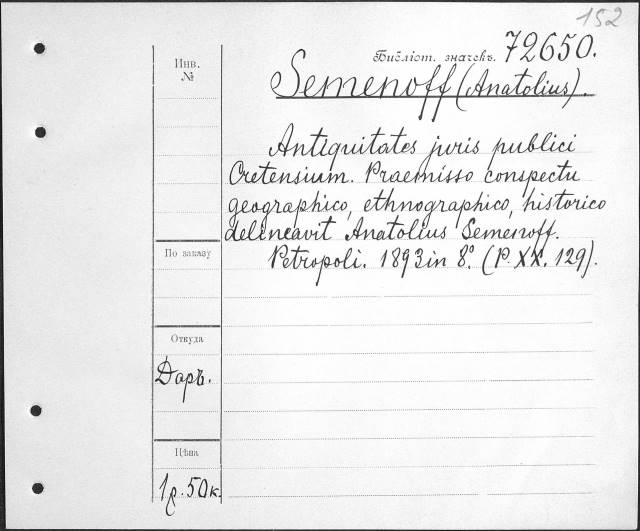 152
Инв.
№
Библіот. значекъ. 72650.
Semenoff (Anatolius).
Antiquitates juris publici
Cretensium. Praemisso conspectu
geographico, ethnographico, historico
delineavit Anatolius Semenoff.
Petropoli. 1893 in 8°. (P. XX. 129).
По заказу
Откуда
Даръ.
Цѣна
1р. 50к.